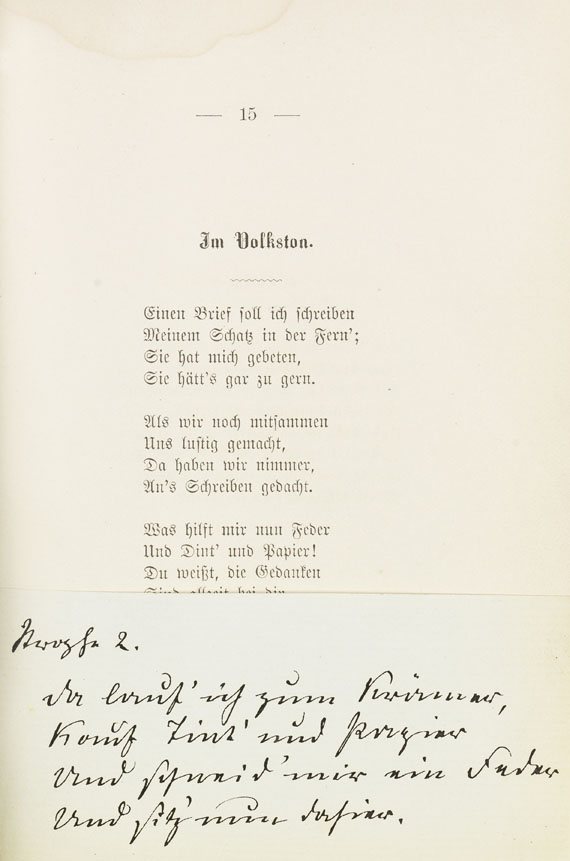 — 15 —
Im Volkston.
Einen Brief soll ich schreiben
Meinem Schatz in der Fern';
Sie hat mich gebeten,
Sie hätt's gar zu gern.
Als wir noch mitsammen
Uns lustig gemacht,
Da haben wir nimmer,
An's Schreiben gedacht.
Was hilft mir nun Feder
Und Dint' und Papier!
Du weißt, die Gedanken
Sind allzeit bei dir.
Strophe 2.
Da lauf' ich zum Krämer,
Kauf Tint' und Papier
Und schneid' mir ein Feder
Und sitz' nun dahier.